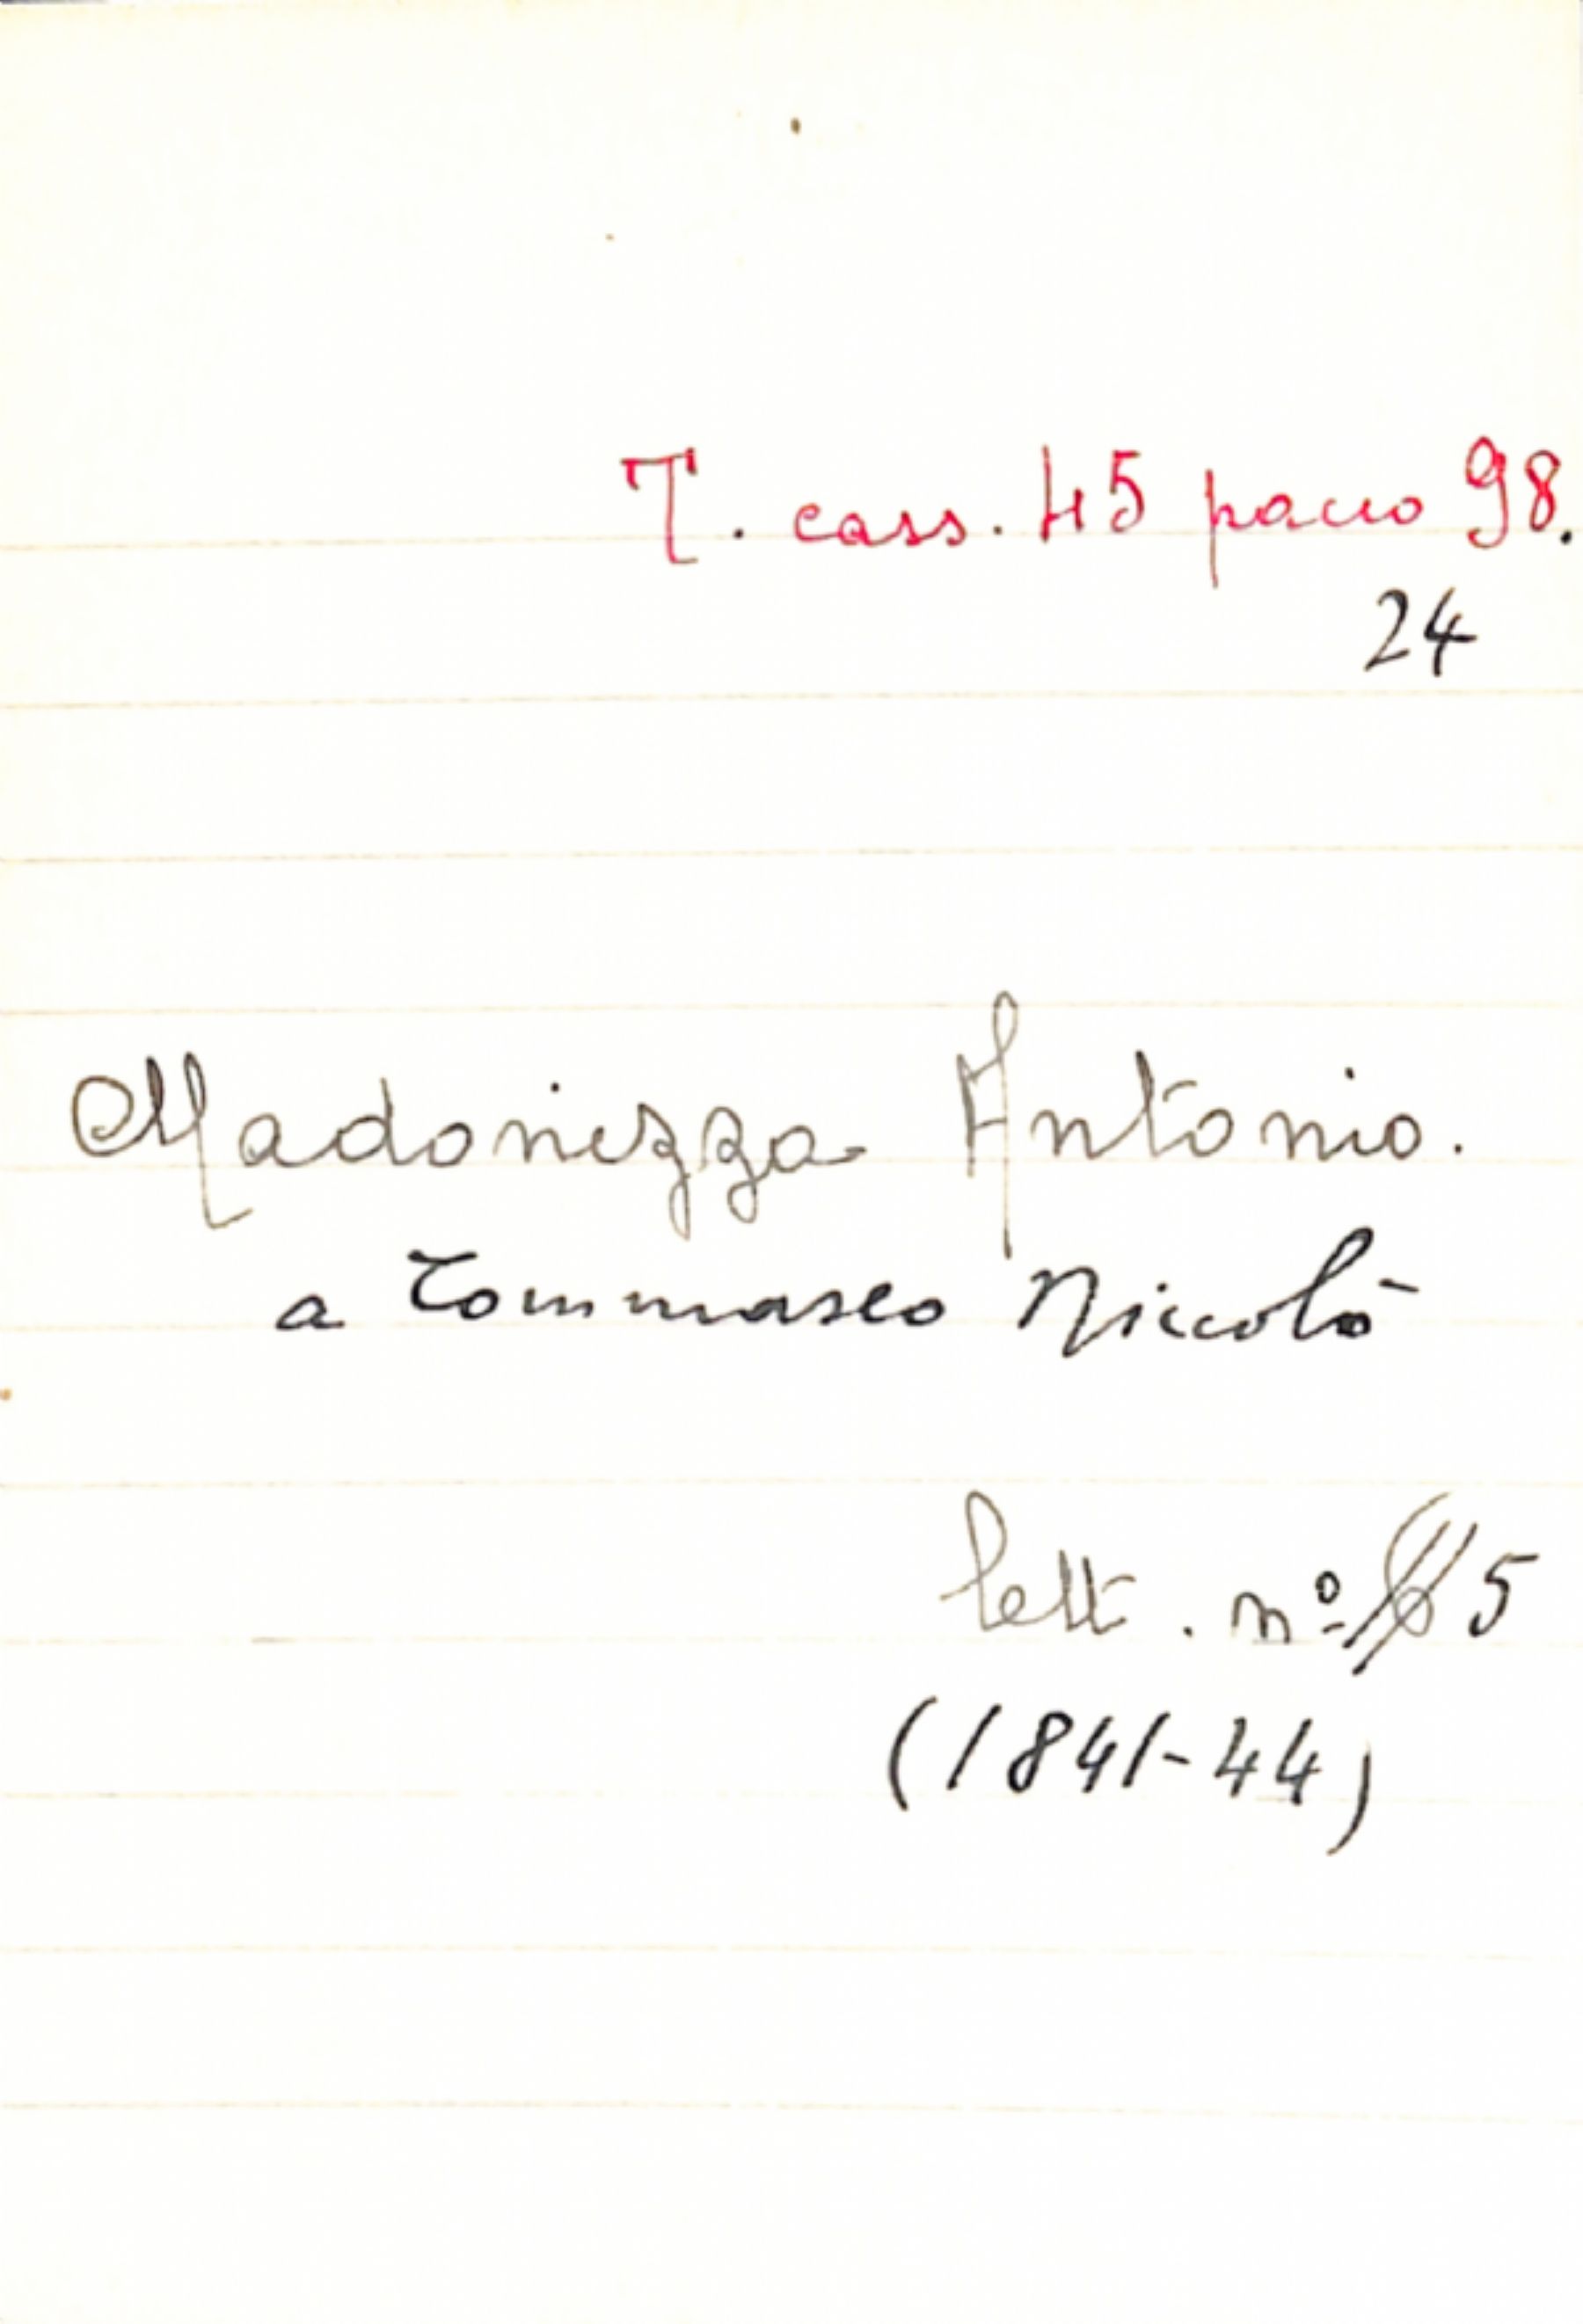 T. cass. 45 pacco 98.
24
Madonizza Antonio.
a Tommaseo Niccolò
lett. nº 5
(1841-44)